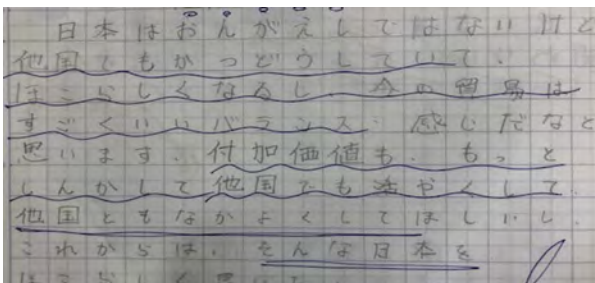 日本はおんがえしではないけど
他国でもかつどうしていて、
ほこらしくなるし、今の貿易は
すごくいいバランス、感じだなと
思います。付加価値も、もっと
しんかして他国でも活やくして、
他国ともなかよくしてほしいし、
これからは、そんな日本を
ほこらしく思って